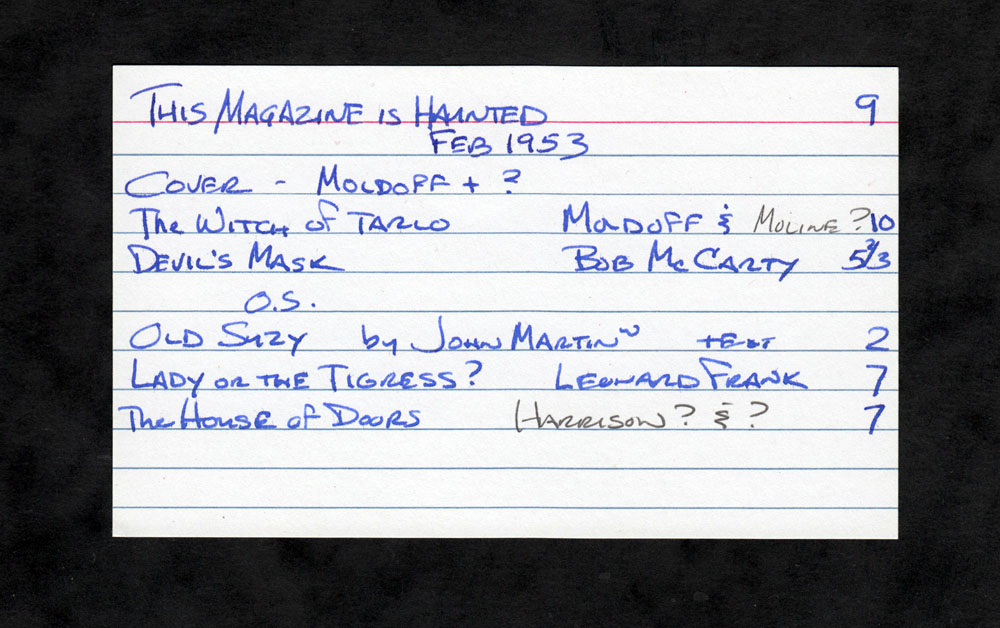 THIS MAGAZINE IS HAUNTED 9
FEB 1953
COVER - MOLDOFF + ?
The WITCH of TARLO MOLDOFF & MOLINE? 10
DEVIL'S MASK BOB McCARTY 5 2/3
O.S.
OLD SUZY by JOHN MARTIN w TEXT 2
LADY OR THE TIGRESS? LEONARD FRANK 7
The HOUSE of DOORS HARRISON? & ? 7